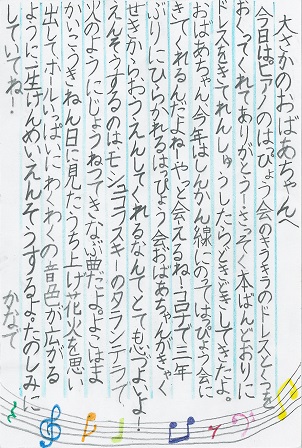 大さかのおばあちゃんへ
今日はピアノのはっぴょう会のキラキラのドレスとくつを
おくってくれてありがとう！さっそく本ばんどおりに
ドレスをきてれんしゅうしたらどきどきしてきたよ。
おばあちゃん、今年はしんかん線にのってはっぴょう会に
きてくれるんだよね！やっと会えるね！コロナで三年
ぶりにひらかれるはっぴょう会、おばあちゃんがきゃく
せきからおうえんしてくれるなんてとても心づよいよ！
えんそうするのはモシュコフスキーのタランテラで、
火のようにじょうねつてきなぶ曲だよ。よこはま
かいこうきねん日に見たうち上げ花火を思い
出してホールいっぱいにわくわくの音色が広がる
ように一生けんめいえんそうするよ。たのしみに
していてね！
かなで